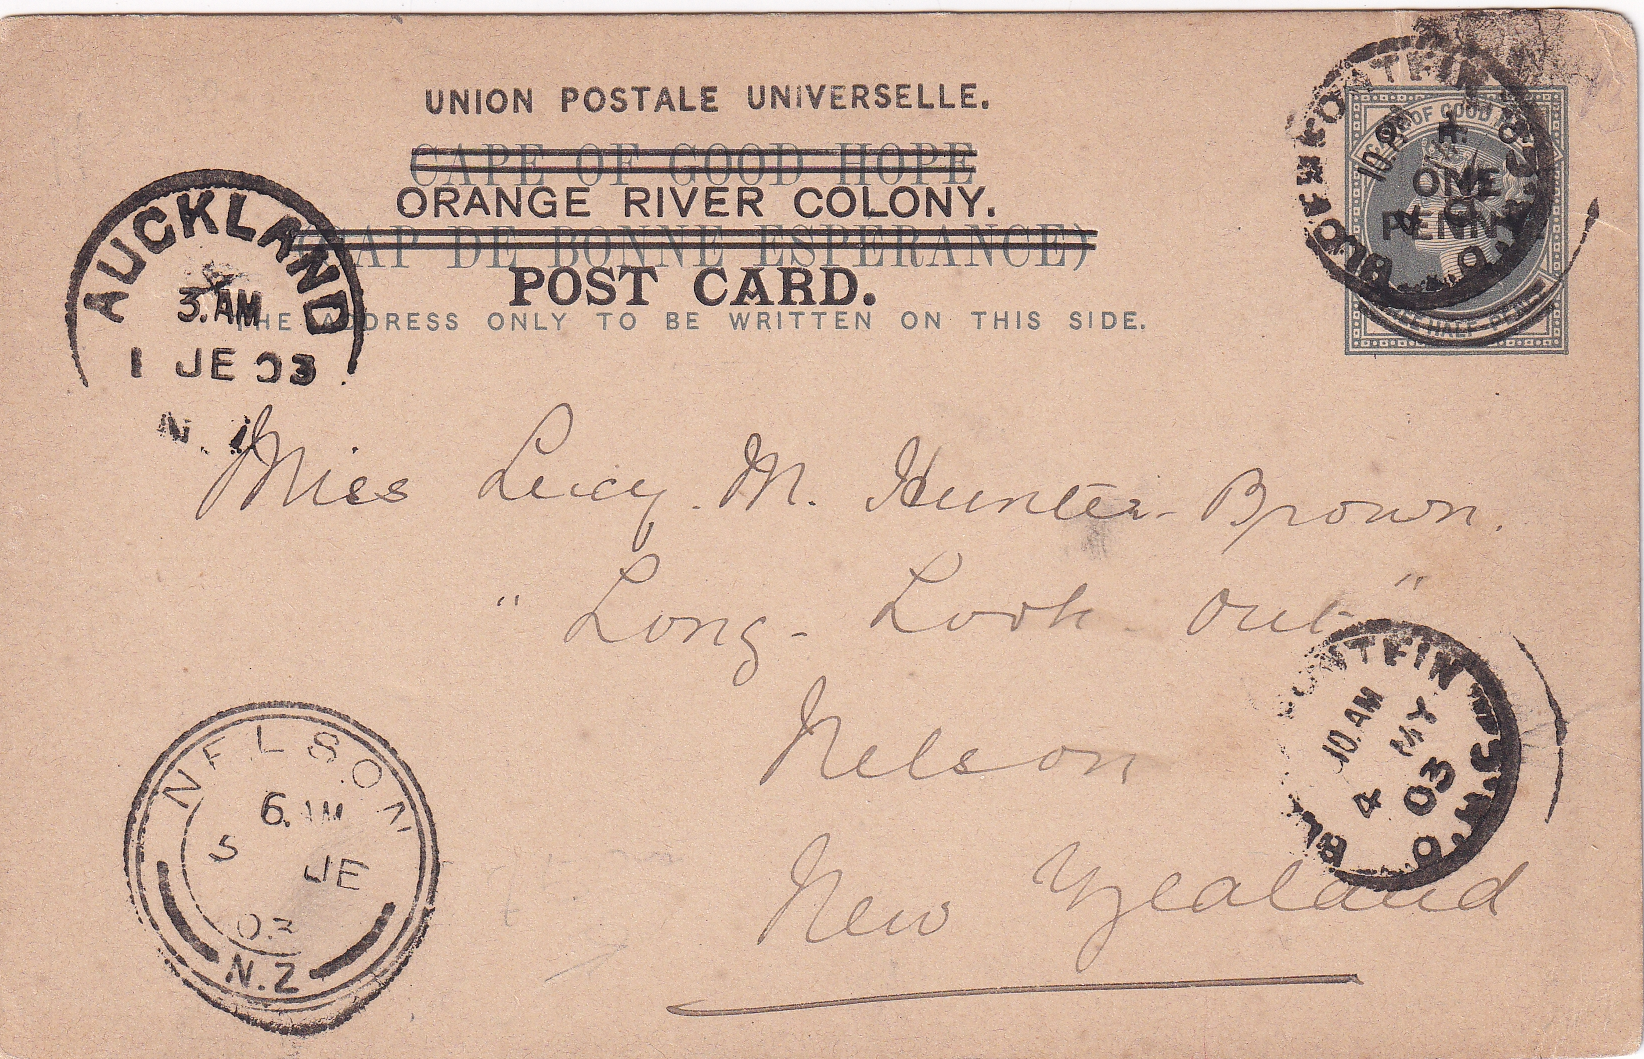 UNION POSTALE UNIVERSELLE.
CAPE OF GOOD HOPE
ORANGE RIVER COLONY.
(CAP DE BONNE ESPERANCE)
POST CARD.
THE ADDRESS ONLY TO BE WRITTEN ON THIS SIDE.
OF GOOD
ONE
PENNY
HALF-PENNY
10. AM
4
AUCKLAND
3. AM
1 JE 03
N.
Miss Lucy. M. Hunter-Brown.
"Long-Look-Out"
Nelson
New Zealand
10. AM
4 MY
03
NELSON
6. AM
5 JE
03
N.Z